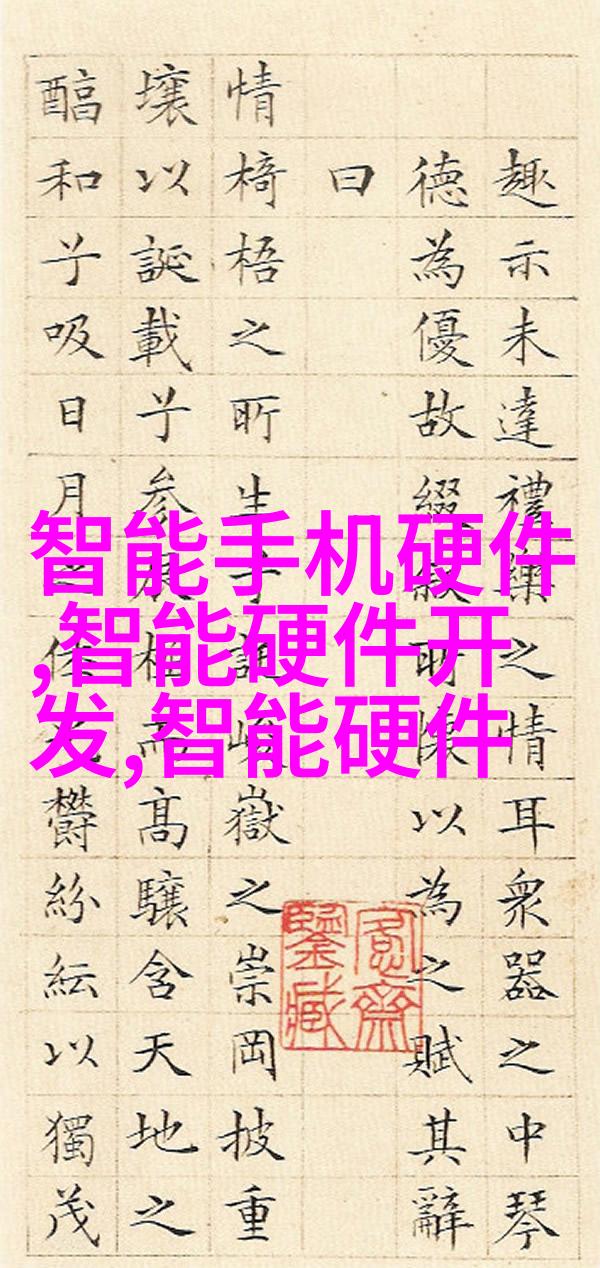 智能手机硬件
,智能硬件开
发,智能硬件
趣示未達禮樂之情耳衆器之中琴
德為優故綴叙所懷以為之賦其辭
曰
情椅梧之所生兮託峻嶽之崇岡披重
壤以誕載兮参辰極而高驤含天地之
醕和兮吸日月之休光鬱紛紜以獨茂
愙齋
鑒藏